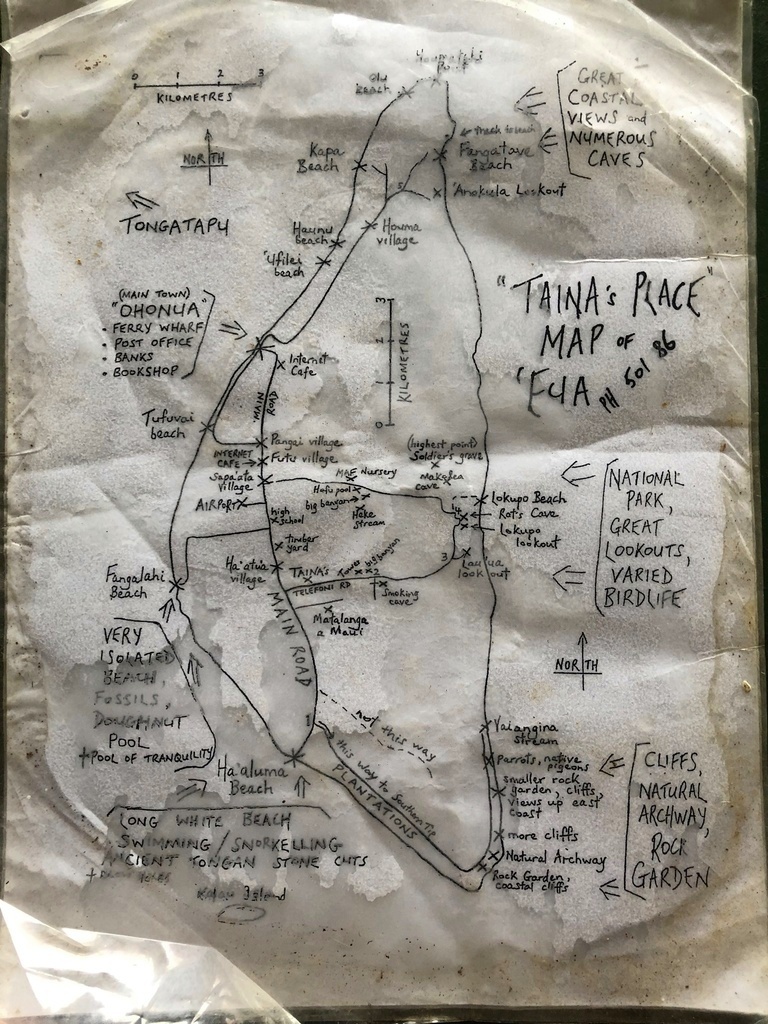 0 1 2 3
KILOMETRES
NORTH
TONGATAPU
Beach
GREAT
COASTAL
VIEWS and
NUMEROUS
CAVES
← Track to beach
Fangatave
Beach
Kapa
Beach
5
Anokula Lookout
Haunu
beach
Houma
village
'Ufilei
beach
(MAIN TOWN)
"OHONUA"
• FERRY WHARF
• POST OFFICE
• BANKS
• BOOKSHOP
Internet
Cafe
3
2
1
0
KILOMETRES
"TAINA'S PLACE"
MAP OF
'EUA
PH 501 86
MAIN
ROAD
Tufuvai
beach
Pangai village
INTERNET
CAFE →
Futu village
Sapa'ata
Village
AIRPORT
high
school
MAF Nursery
Hafu pool
big banyan
Heke
Stream
(highest point)
Soldier's grave
Makalea
cave
4
Lokupo Beach
Rat's Cave
Lokupo
lookout
NATIONAL
PARK,
GREAT
LOOKOUTS,
VARIED
BIRDLIFE
timber
yard
Ha'atua
village
TAINA'S
Tower
big banyan
2
3
Lau'ua
lookout
TELEFONI RD
Smoking
cave
Matalanga
a Maui
Fangalahi
Beach
MAIN ROAD
NORTH
VERY
ISOLATED
BEACH,
FOSSILS,
DOUGHNUT
POOL
+ POOL OF TRANQUILITY
1
not this way
this way to Southern Tip
PLANTATIONS
Ha'aluma
Beach
Vaiangina
Stream
Parrots, native
pigeons
smaller rock
garden, cliffs,
views up east
coast
more cliffs
Natural Archway
Rock Garden,
coastal cliffs
CLIFFS,
NATURAL
ARCHWAY,
ROCK
GARDEN
LONG WHITE BEACH
SWIMMING / SNORKELLING
ANCIENT TONGAN STONE CUTS
Kalau Island